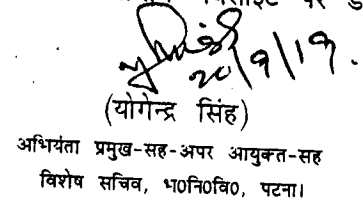 20/9/19.
(योगेन्द्र सिंह)
अभियंता प्रमुख-सह-अपर आयुक्त-सह
विशेष सचिव, भ0नि0वि0, पटना।